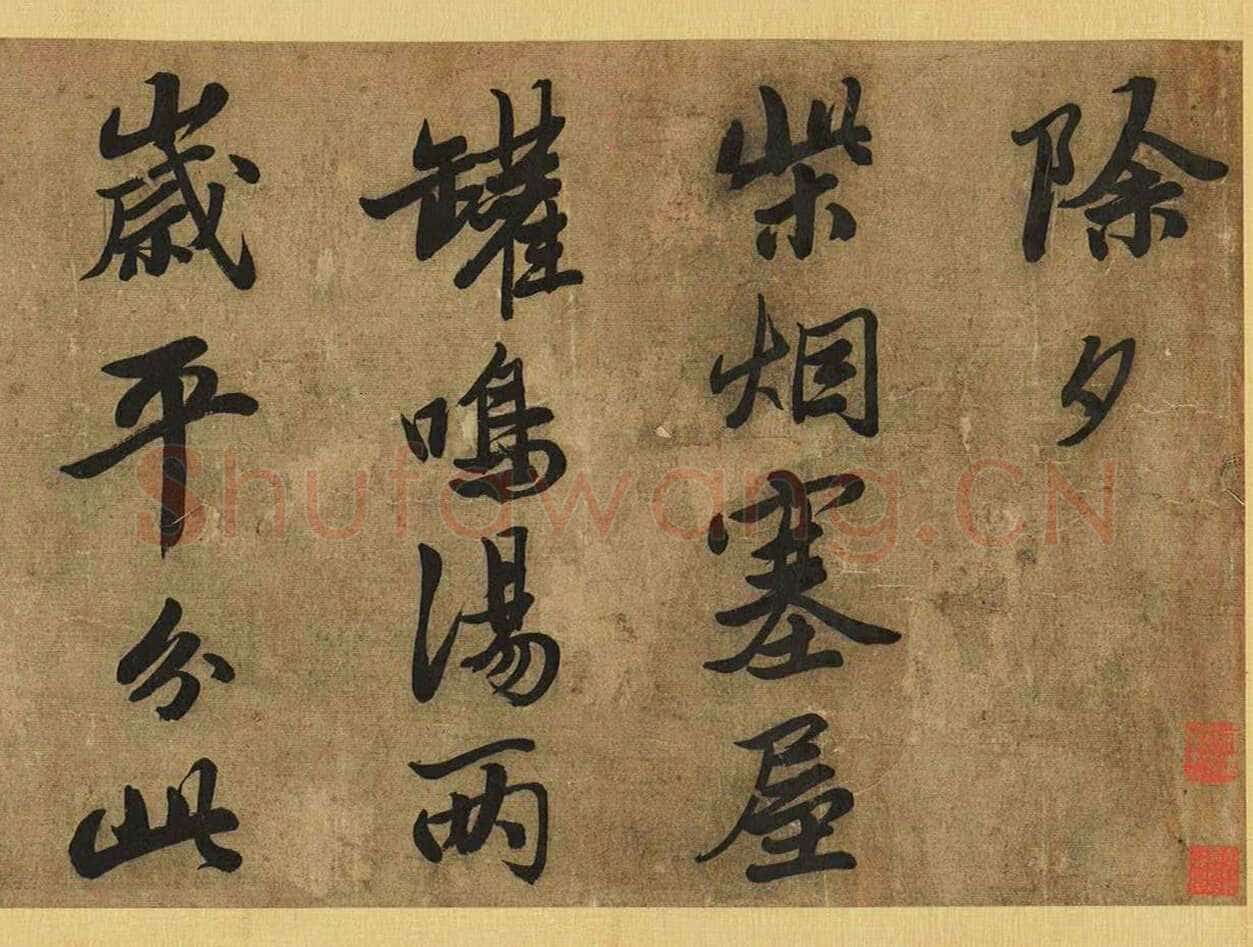 除夕
柴烟塞屋
罐鳴湯兩
歲平分此
Shufawang.CN